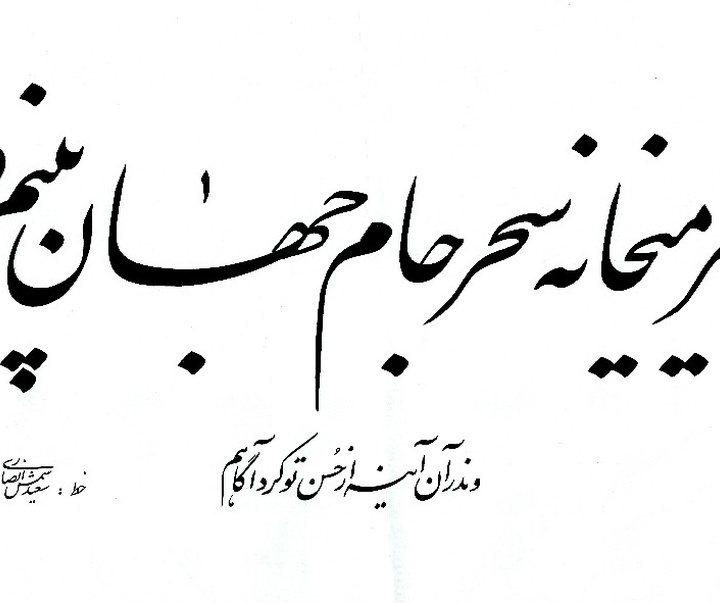 میخانه سحر جام جهان بینم
وندر آن آینه از حُسن تو کرد آگاهم
خط : سعید شمس انصاری